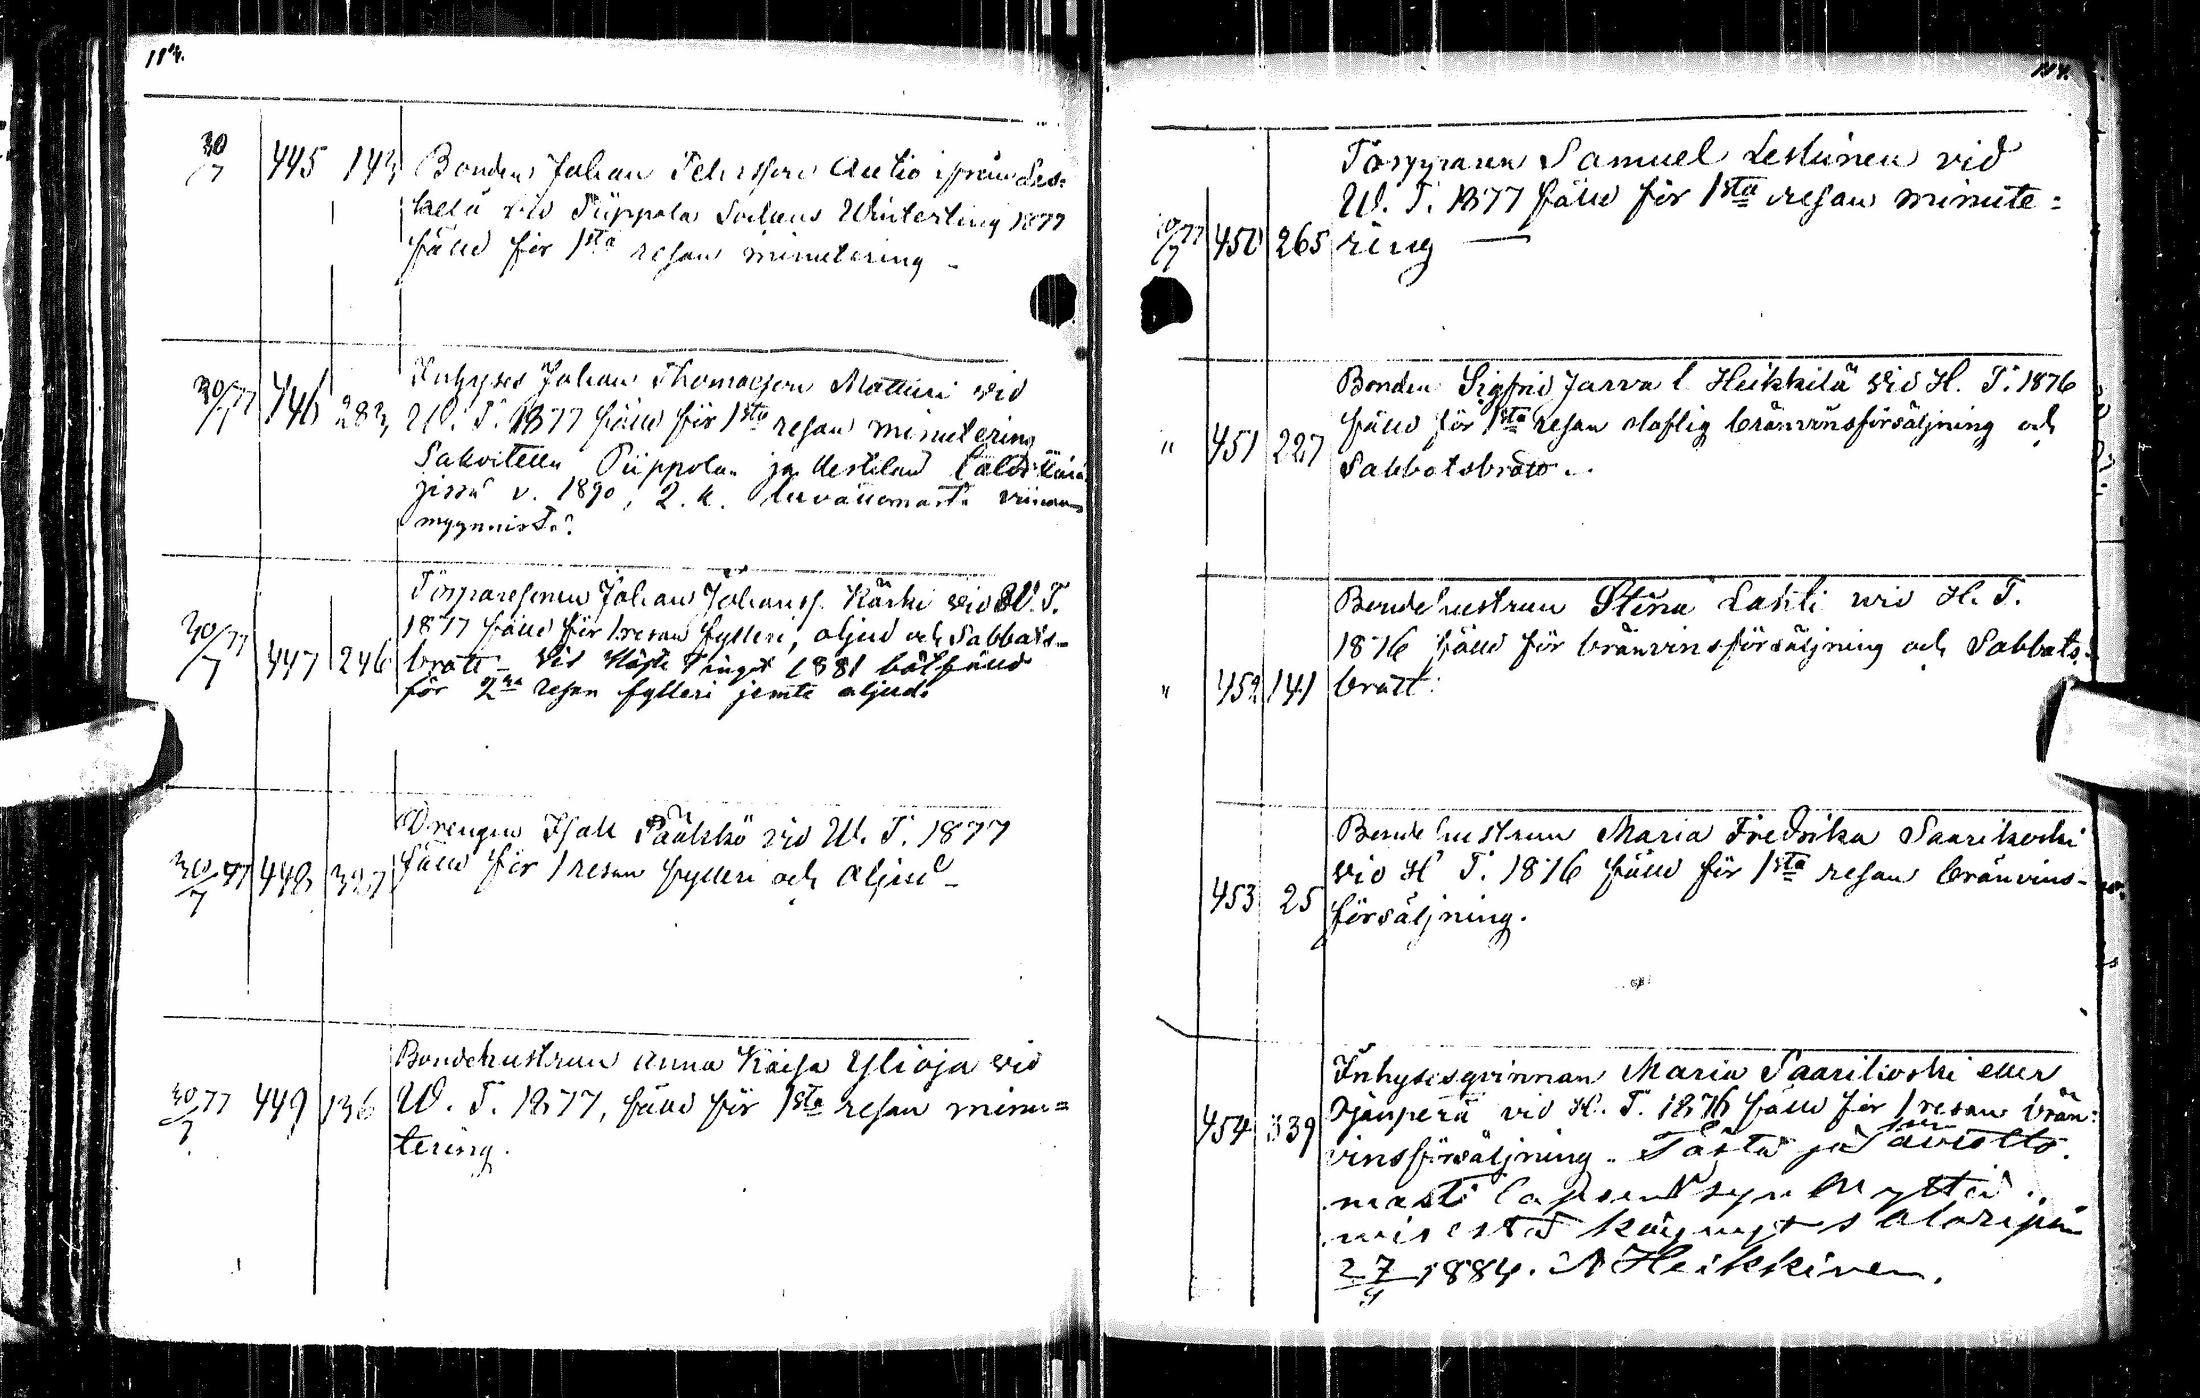 114.
30/7 445 143 Bonden Johan Petersson Autio ifrån Les=
kelä vid Piippola Sockens Winterting 1877
fälld för 1sta resan minutering -
30/7 77 446 283 Inhyses Johan Thomasson Mattiini vid
W. T. 1877 fälld för 1sta resan minutering
Sakoitettu Piippolan ja Kestilän talvikärä
jissä v. 1890, 2. k. luvattomasta viinan
myynnistä.
30/7 77 447 246 Torparesonen Johan Johanss. Kärki vid W. T.
1877 fälld för 1 resan fylleri, oljud och Sabbats-
brott - Vid Höste Tinget 1881 bötfälld
för 2dra resan fylleri jemte oljud.
30/7 77 448 327 Drengen Isak Pääkkö vid W. T. 1877
fälld för 1 resan fylleri och oljud -
30/7 77 449 136 Bondehustrun Anna Kaisa Ylioja vid
W. T. 1877, fälld för 1sta resan minu=
tering.
114.
Torpparen Samuel Leskinen vid
W. T. 1877 fälld för 1sta resan minute=
30/7 77 450 265 ring —
Bonden Sigfrid Jarva l. Heikkilä vid H. T. 1876
fälld för 1sta resan olaflig bränvinsförsäljning och
" 451 227 Sabbatsbrott.
Bondehustrun Stina Lahti vid H. T.
1876 fälld för bränvinsförsäljning och Sabbats-
" 452 141 brott.
Bondehustrun Maria Fredrika Saarikoski
vid H. T. 1876 fälld för 1sta resan bränvins-
453 25 försäljning.
Inhysesqvinnan Maria Saarikoski eller
vid H. T. 1876 fälld för 1 resan brän=
454 339 vinsförsäljning. Tästä ja aviotto
masti lapsen synnyttä
misestä käynyt s
27/4 1884. A Heikkinen.